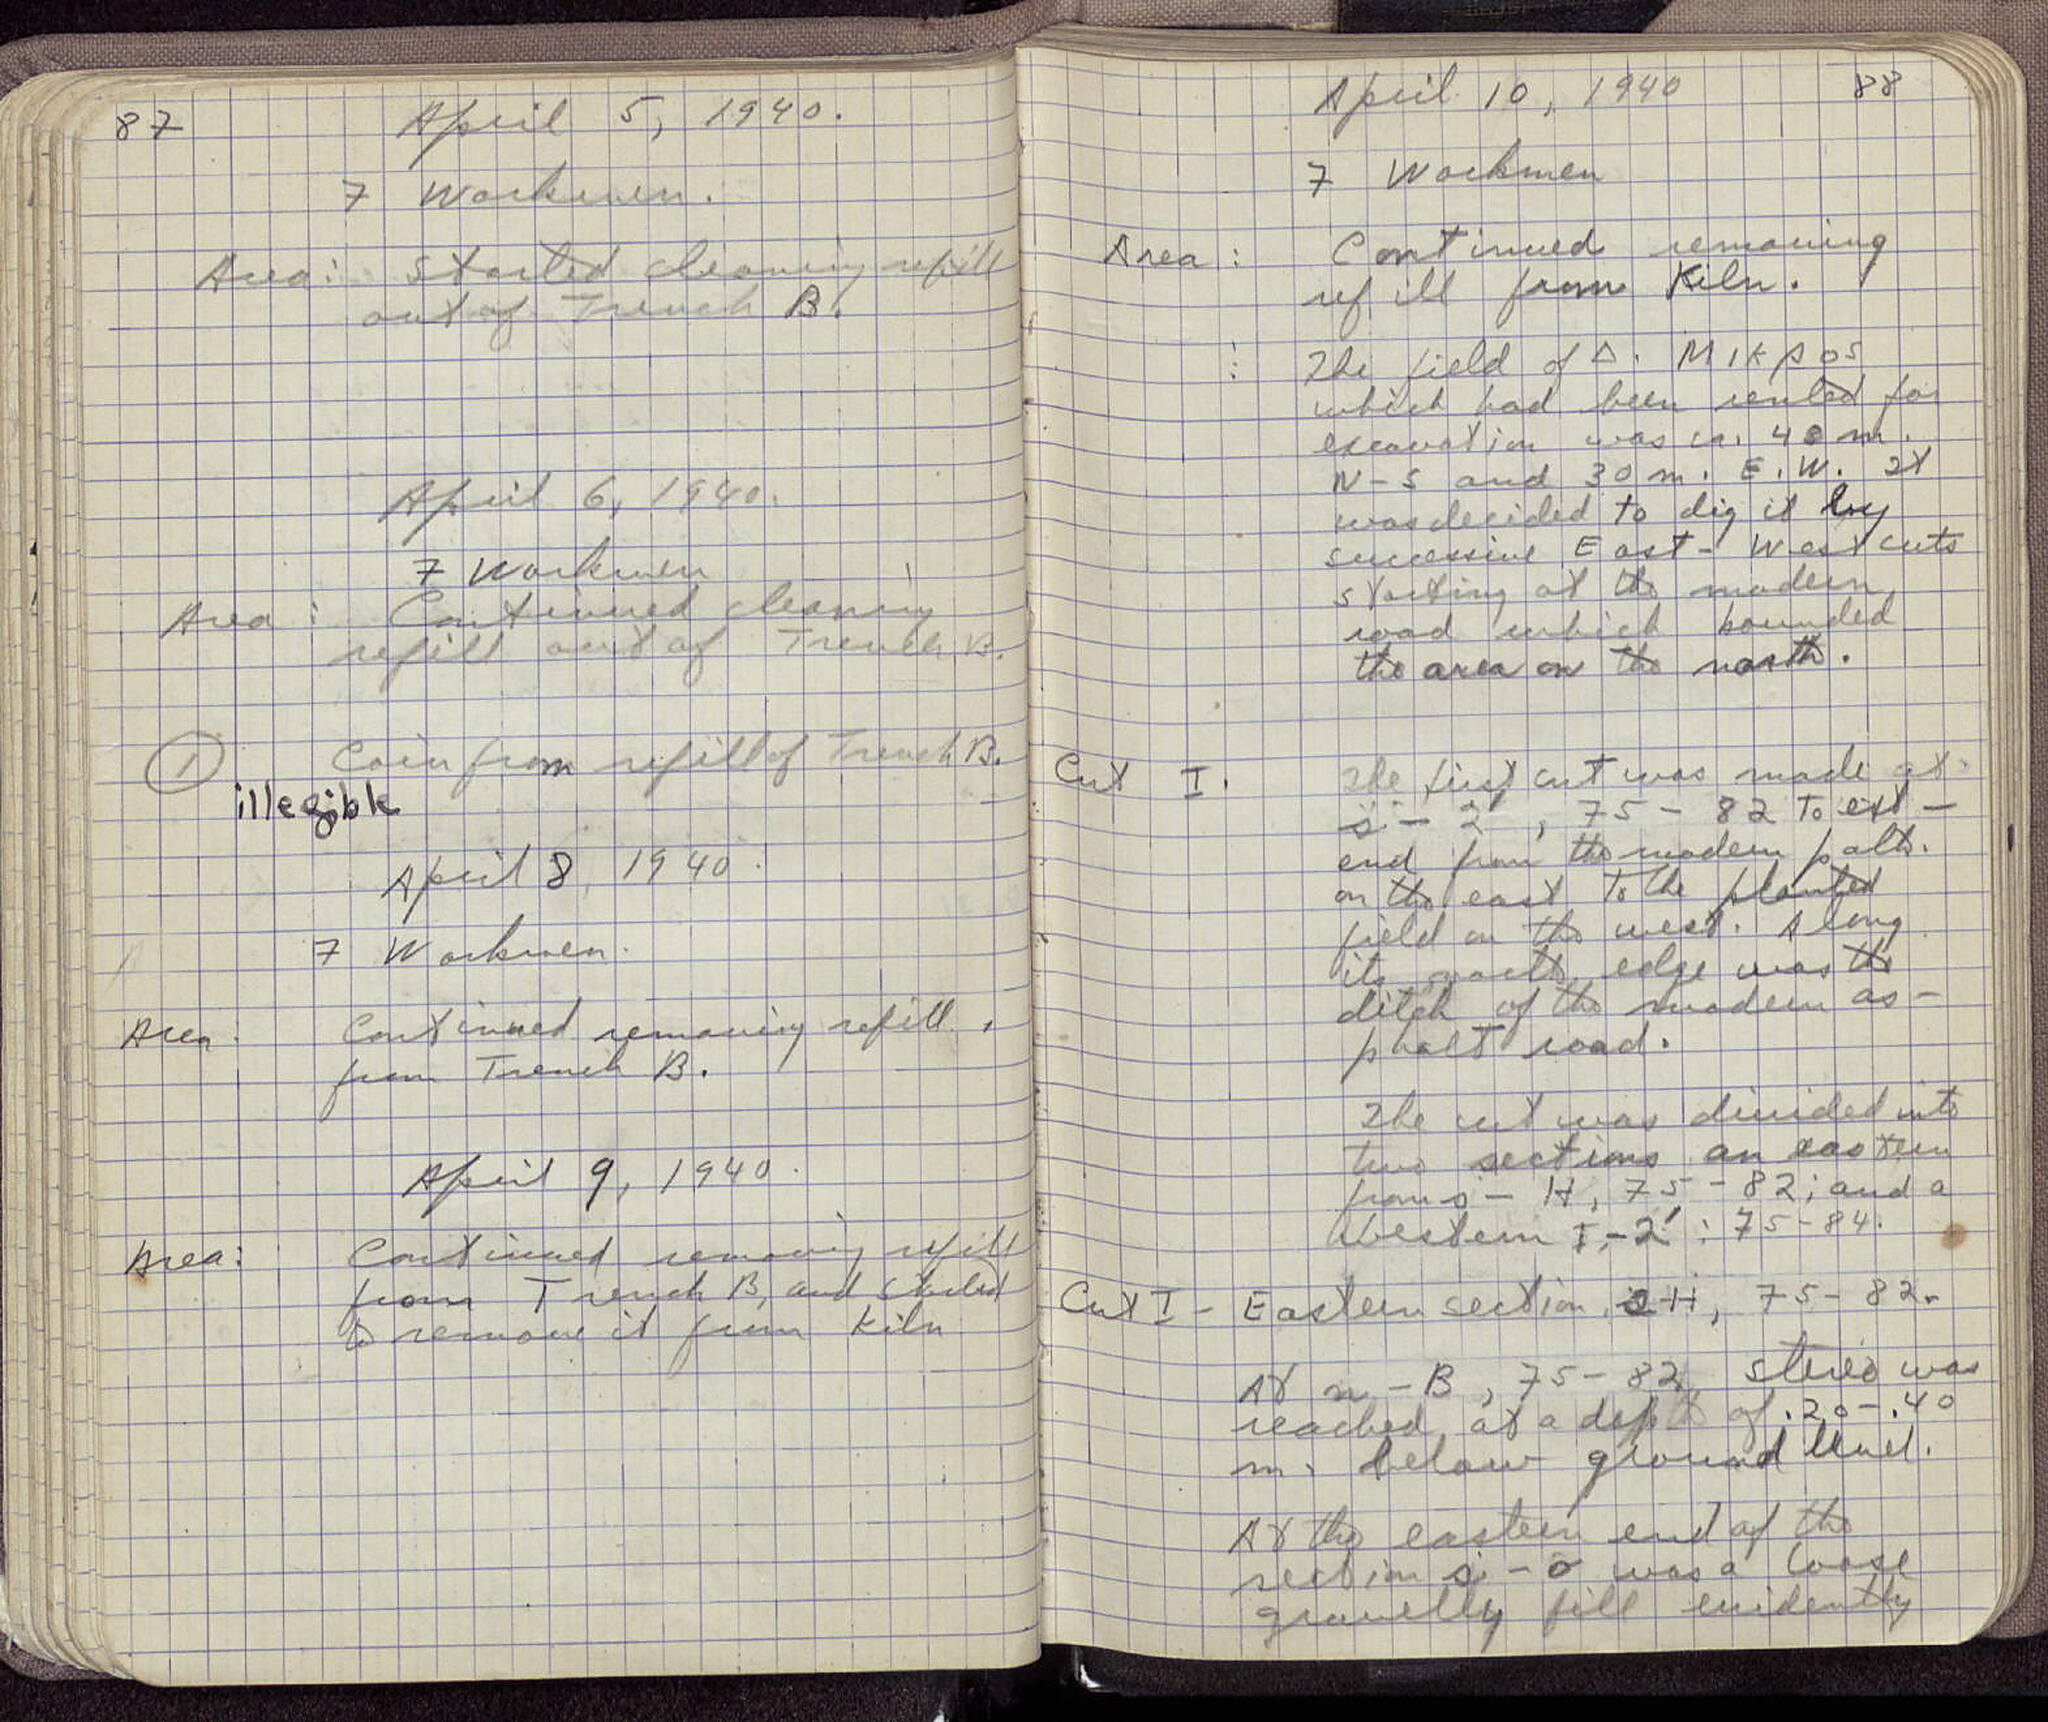 87
April 5, 1940.
7 Workmen.
Area: Started cleaning refill
out of Trench B.
April 6, 1940.
7 Workmen
Area: Continued cleaning
refill out of Trench B.
1 Coin from refill of Trench B.
illegible
April 8, 1940.
7 Workmen.
Area. Continued removing refill
from Trench B.
April 9, 1940.
Area: Continued removing refill
from Trench B, and started
to remove it from Kiln
April 10, 1940
88
7 Workmen
Area: Continued removing
refill from Kiln.
: The field of Δ. Μικρος
which had been rented for
excavation was ca. 40 m.
N-S and 30 m. E.W. It
was decided to dig it by
successive East-West cuts
starting at the modern
road which bounded
the area on the north.
Cut I. The first cut was made at
s - 2', 75-82 to ext-
end from the modern path
on the east to the planted
field on the west. Along
its north edge was the
ditch of the modern as-
phalt road.
The cut was divided into
two sections an eastern
from s - H, 75-82; and a
Western I-2': 75-84.
Cut I - Eastern section, s-H, 75-82.
At n-B, 75-82, stereo was
reached at a depth of .20-.40
m. below ground level.
At the eastern end of the
section s - o was a loose
gravelly fill evidently